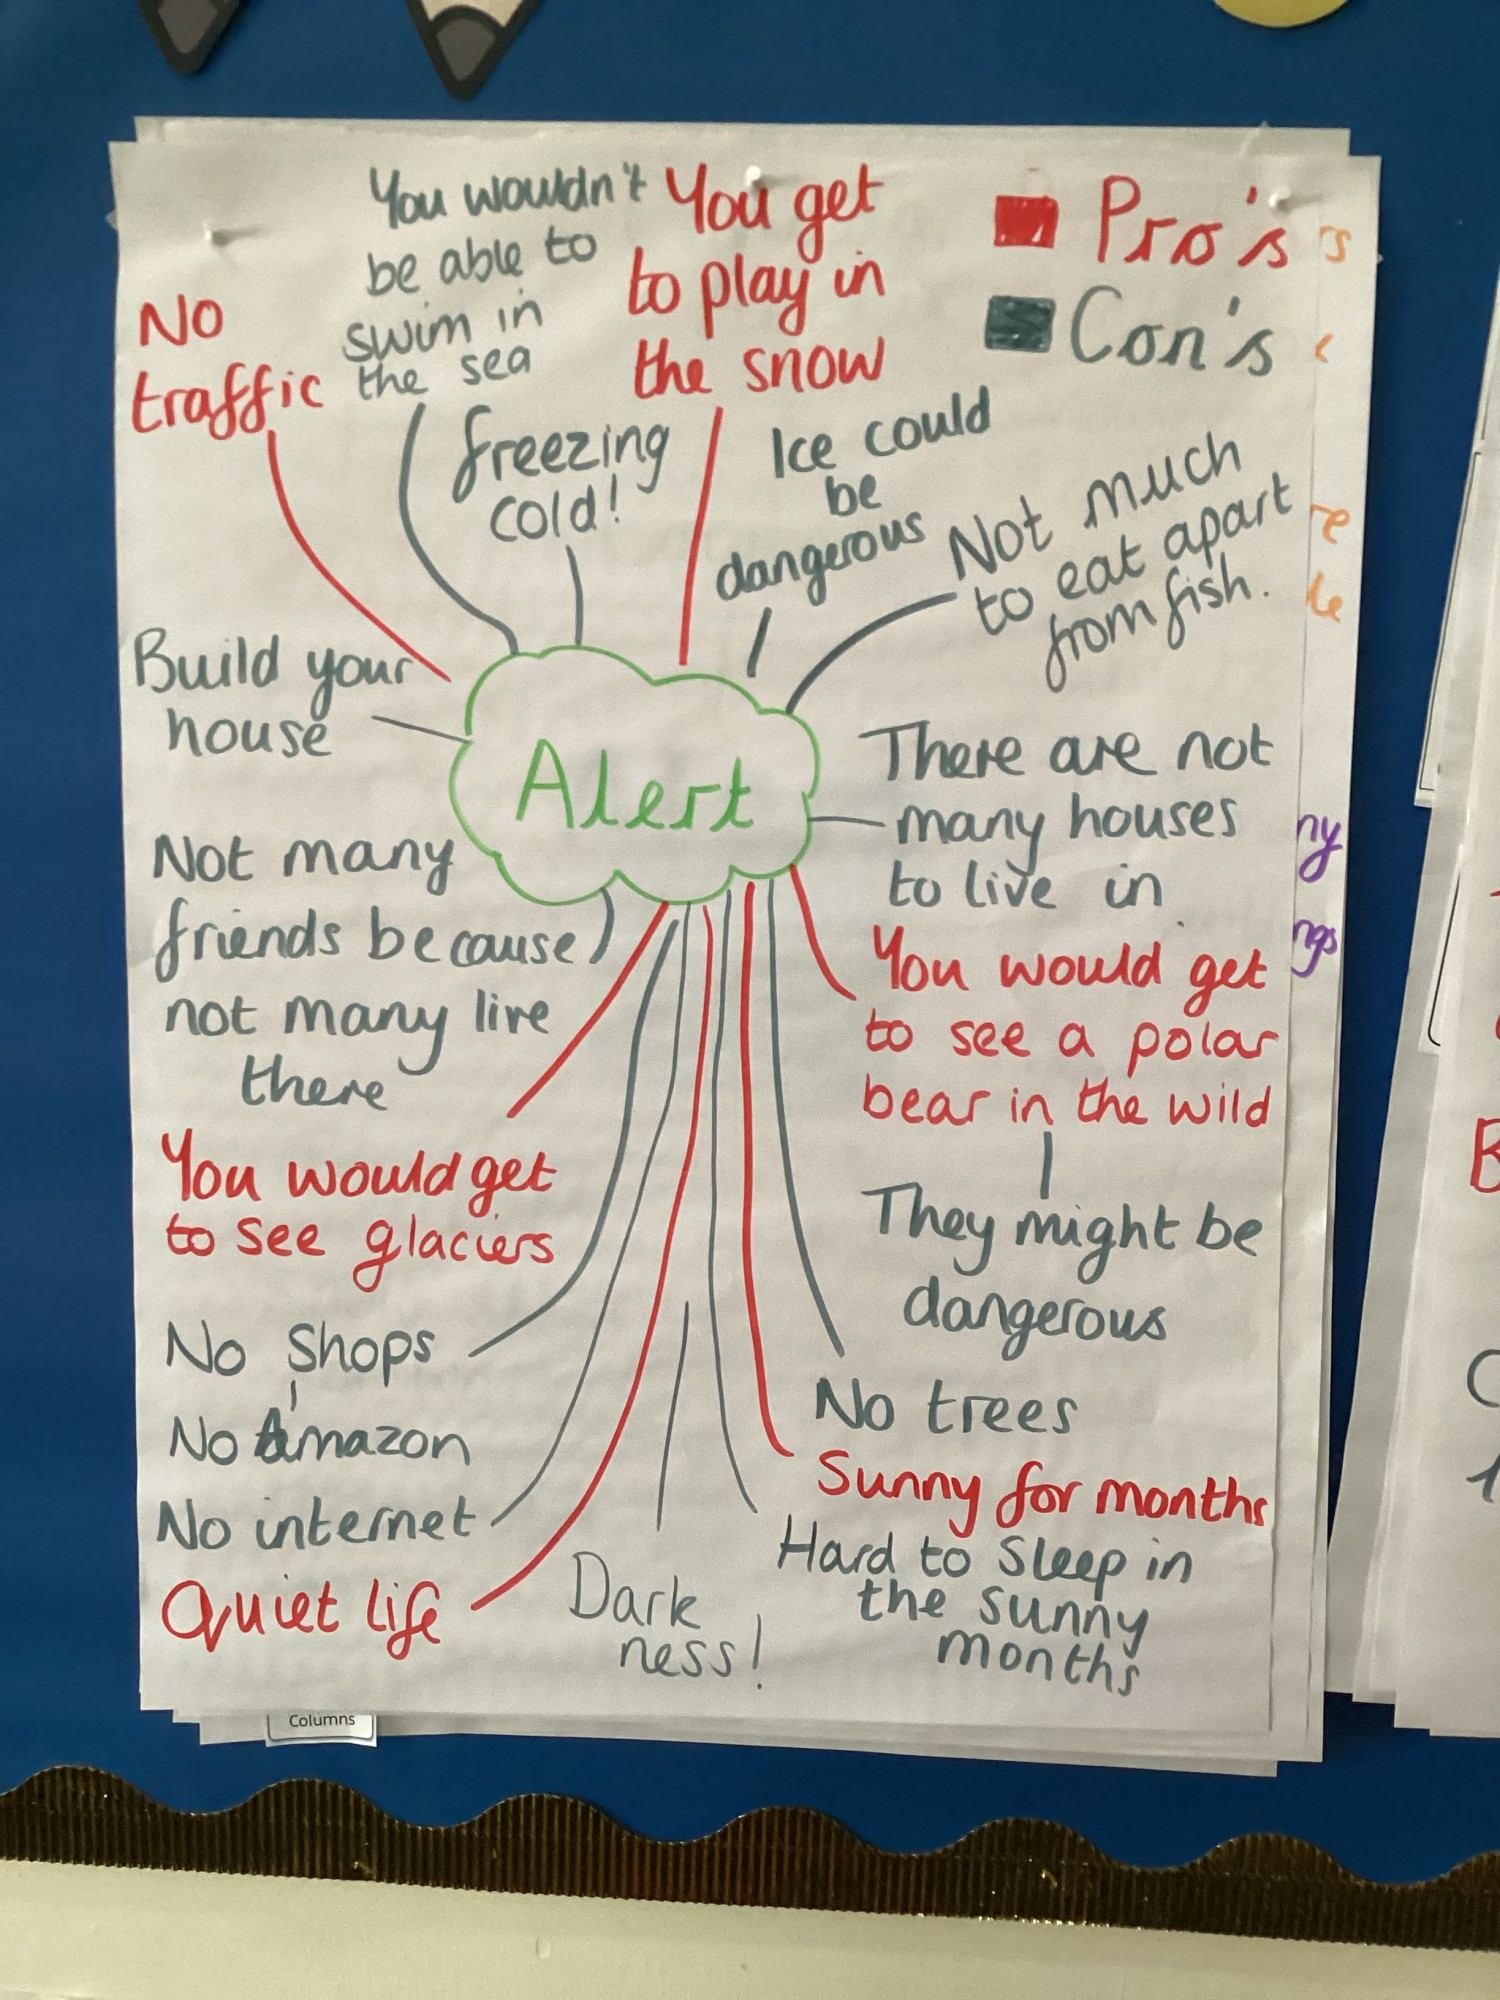 You wouldn't
be able to
swim in
the sea
You get
to play in
the snow
Pro's
Con's
No
traffic
freezing
cold!
Ice could
be
dangerous
Not much
to eat apart
from fish.
Build your
house
Alert
There are not
many houses
to live in
Not many
friends because
not many live
there
You would get
to see a polar
bear in the wild
They might be
dangerous
You would get
to see glaciers
No Shops
No Amazon
No internet
Quiet life
No trees
Sunny for months
Hard to sleep in
the sunny
months
Dark
ness!
Columns
rs
re
le
ny
ngs